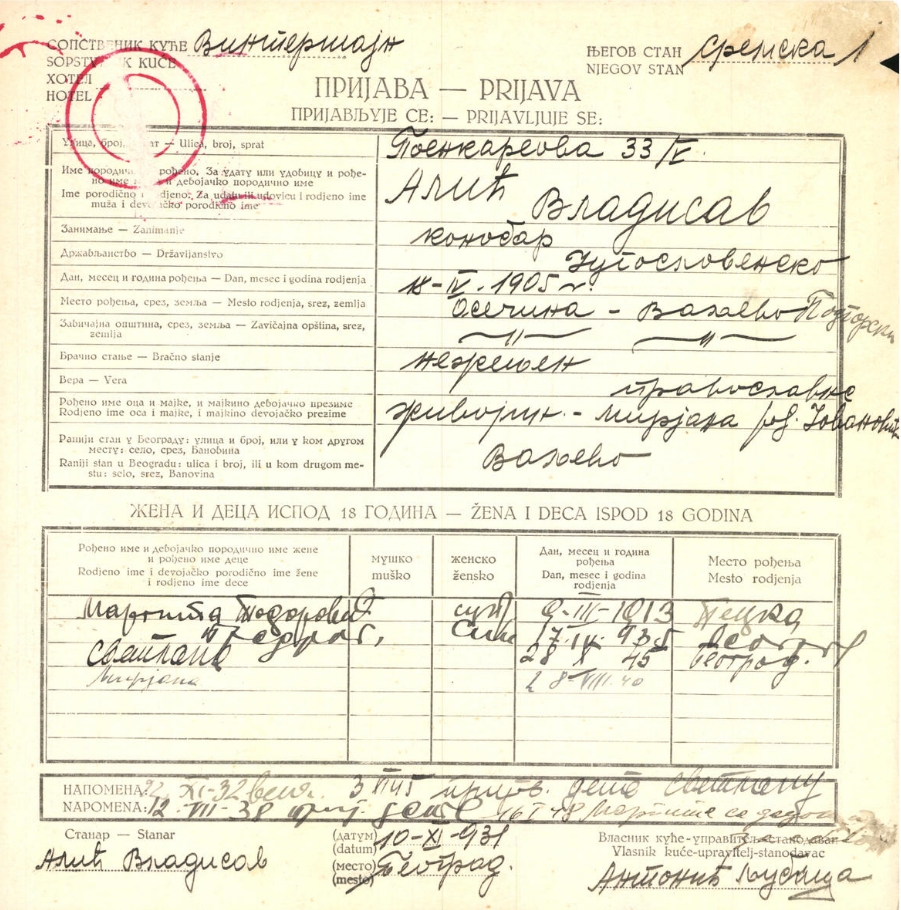 СОПСТВЕНИК КУЋЕ Винтерштајн
SOPSTVENIK KUĆE
ХОТЕЛ
HOTEL
ЊЕГОВ СТАН Сремска 1
NJEGOV STAN
ПРИЈАВА — PRIJAVA
ПРИЈАВЉУЈЕ СЕ: — PRIJAVLJUJE SE:
Улица, број, спрат — Ulica, broj, sprat Поенкареова 33/IV.
Име породично и рођено. За удату или удовицу и рође-
но име мужа и девојачко породично име
Ime porodično i rodjeno. Za udatu ili udovicu i rodjeno ime
muža i devojačko porodično ime
Алић Владисав
Занимање — Zanimanje конобар
Држављанство — Državljanstvo Југословенско
Дан, месец и година рођења — Dan, mesec i godina rodjenja IV-1905
Место рођења, срез, земља — Mesto rodjenja, srez, zemlja Осечина - Ваљево Подгорски
Завичајна општина, срез, земља — Zavičajna opština, srez,
zemlja
—„— —„—
Брачно стање — Bračno stanje нежењен
Вера — Vera православне
Рођено име оца и мајке, и мајкино девојачко презиме
Rodjeno ime oca i majke, i majkino devojačko prezime
Живојин - Мирјана рођ. Јовановић
Ранији стан у Београду: улица и број, или у ком другом
месту: село, срез, Бановина
Raniji stan u Beogradu: ulica i broj, ili u kom drugom me-
stu: selo, srez, Banovina
Ваљево
ЖЕНА И ДЕЦА ИСПОД 18 ГОДИНА — ŽENA I DECA ISPOD 18 GODINA
Рођено име и девојачко породично име жене
и рођено име деце
Rodjeno ime i devojačko porodično ime žene
i rodjeno ime dece
мушко
muško
женско
žensko
Дан, месец и година
рођења
Dan, mesec i godina
rodjenja
Место рођења
Mesto rodjenja
Маргита 9-III-1913 Пецка
син 17.IV.935 Београд
Светлана 28 X 45 Београд.
Мирјана 28-VIII 40
НАПОМЕНА: 3 XII 45 дете Светлану
NAPOMENA: 12-VII-38
Станар — Stanar
Алић Владисав
(датум) 10-XI-931
(datum)
(место) Београд.
(mesto)
Власник куће-управитељ-станодавац
Vlasnik kuće-upravitelj-stanodavac
Антонић Љубица